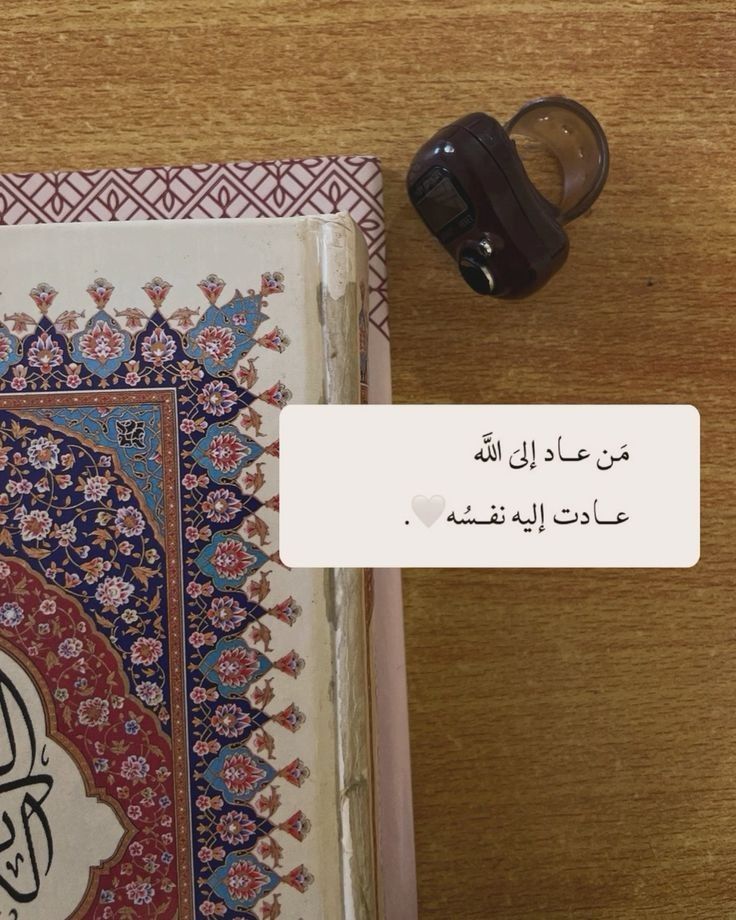 مَن عـاد إلىَ اللَّه
عـادت إليه نفـسُه🤍.